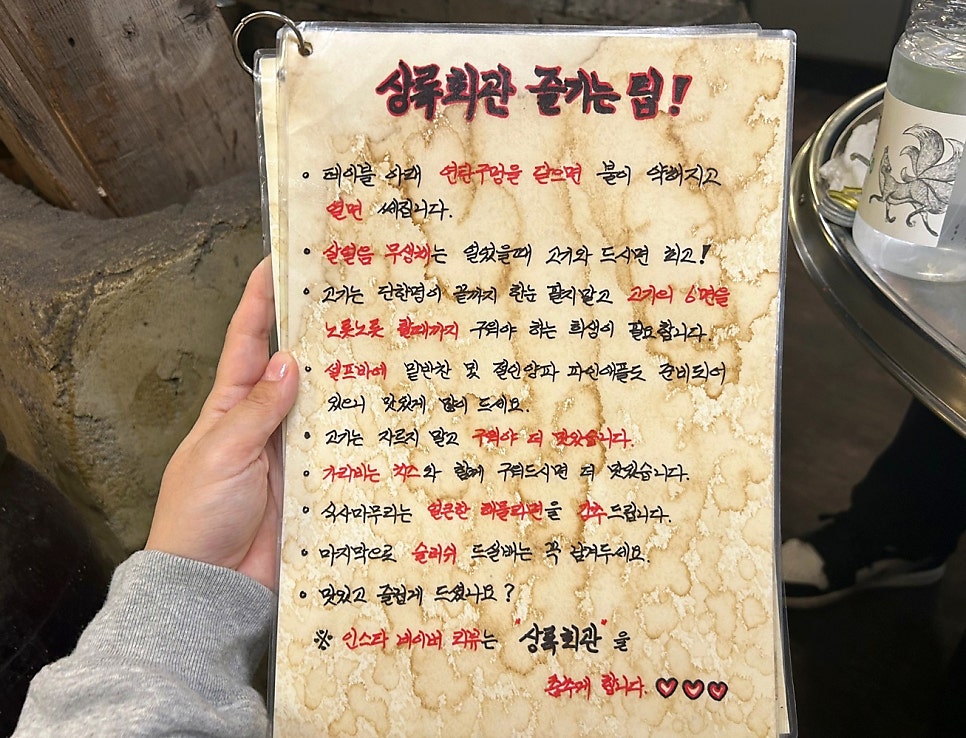 상록회관 즐기는 팁!
• 테이블 아래 연탄구멍을 닫으면 불이 약해지고
열면 쎄집니다.
• 살얼음 무생채는 얼었을때 고기와 드시면 최고!
• 고기는 단한명이 끝까지 한눈 팔지말고 고기의 6면을
노릇노릇 할때까지 구워야 하는 희생이 필요합니다.
• 셀프바에 밑반찬 및 절인양파 파인애플도 준비되어
있으니 맛있게 많이 드세요.
• 고기는 자르지 말고 구워야 더 맛있습니다.
• 가리비는 치즈와 함께 구워드시면 더 맛있습니다.
• 식사마무리는 얼큰한 해물라면을 강추드립니다.
• 마지막으로 슬러쉬 드실배는 꼭 남겨두세요.
• 맛있고 즐겁게 드셨나요?
※ 인스타 네이버 리뷰는 "상록회관"을
춤추게 합니다. ♡♡♡